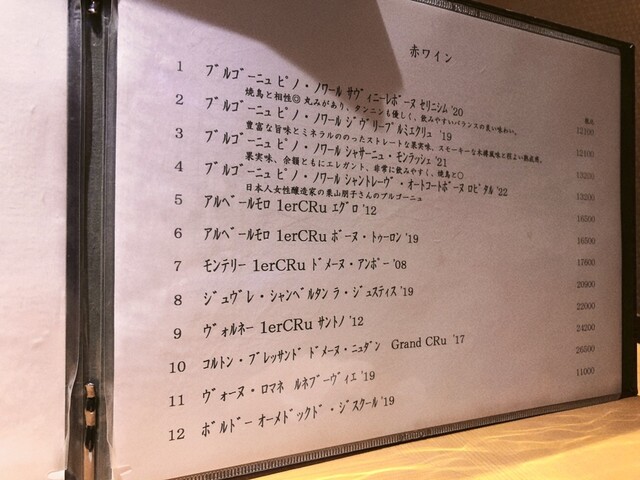 赤ワイン
税込
1 ブルゴーニュ ピノ・ノワール サヴィニーレボーヌ セリニシム '20 12100
焼鳥と相性◎ 丸みがあり、タンニンも優しく、飲みやすいバランスの良い味わい。
2 ブルゴーニュ ピノ・ノワール ジヴリープルミエクリュ '19 12100
豊富な旨味とミネラルののったストレートな果実味、スモーキーな木樽風味と程よい熟成感。
3 ブルゴーニュ ピノ・ノワール シャサーニュ・モンラッシェ '21 13200
果実味、余韻ともにエレガント、非常に飲みやすく、焼鳥と○
4 ブルゴーニュ ピノ・ノワール シャントレーヴ・オートコートボーヌ ロピタル '22 13200
日本人女性醸造家の栗山朋子さんのブルゴーニュ
5 アルベールモロ 1erCRu エグロ '12 16500
6 アルベールモロ 1erCRu ボーヌ・トゥーロン '19 16500
7 モンテリー 1erCRu ドメーヌ・アンポー '08 17600
8 ジュヴレ・シャンベルタン ラ・ジュスティス '19 20900
9 ヴォルネー 1erCRu サントノ '12 22000
10 コルトン・ブレッサンド ドメーヌ・ニュダン Grand CRu '17 24200
11 ヴォーヌ・ロマネ ルネブーヴィエ '19 26500
12 ボルドー オーメドックド・ジスクール '19 11000